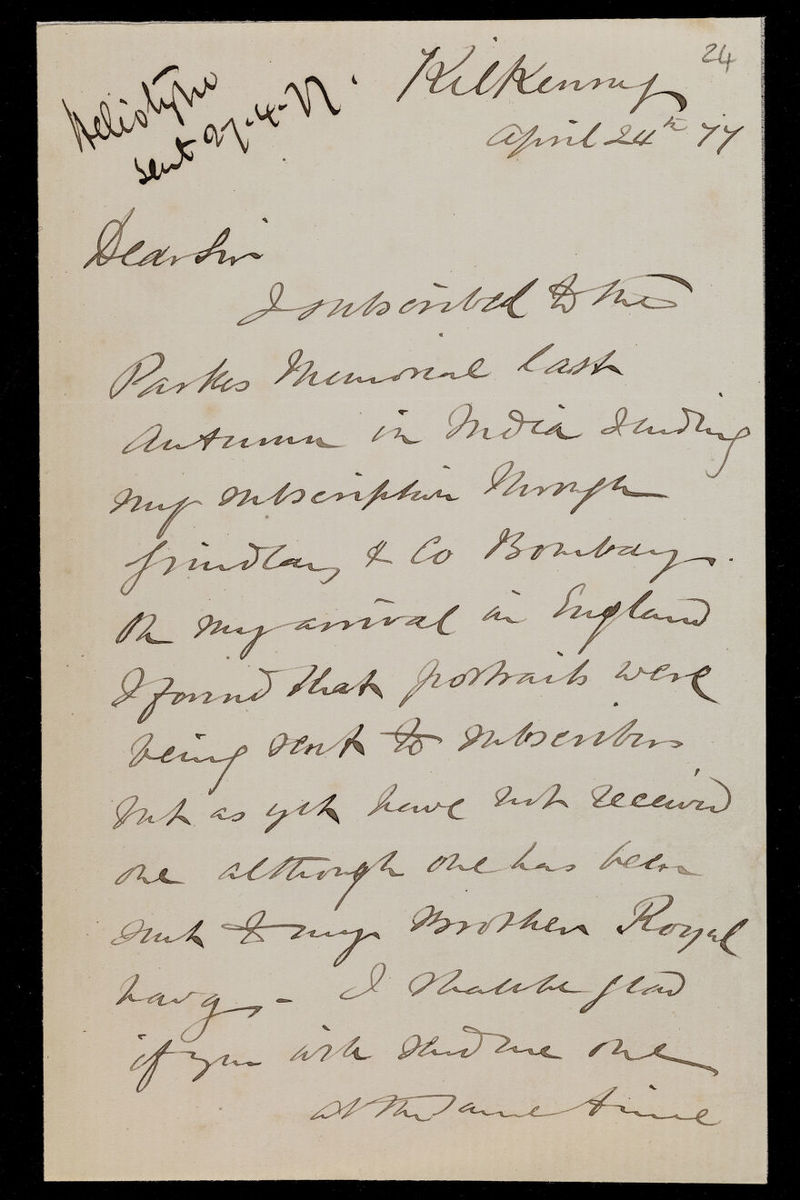 24
Heliotype
sent 27-4-77.
Kilkenny
April 24th 77
Dear Sir
I subscribed to the
Parkes Memorial last
Autumn in India sending
my subscription through
Grindlay & Co Bombay.
On my arrival in England
I found that portraits were
being sent to subscribers
but as yet have not received
one although one has been
sent to my Brother Royal
Navy - I shall be glad
if you will send me one
at the same time